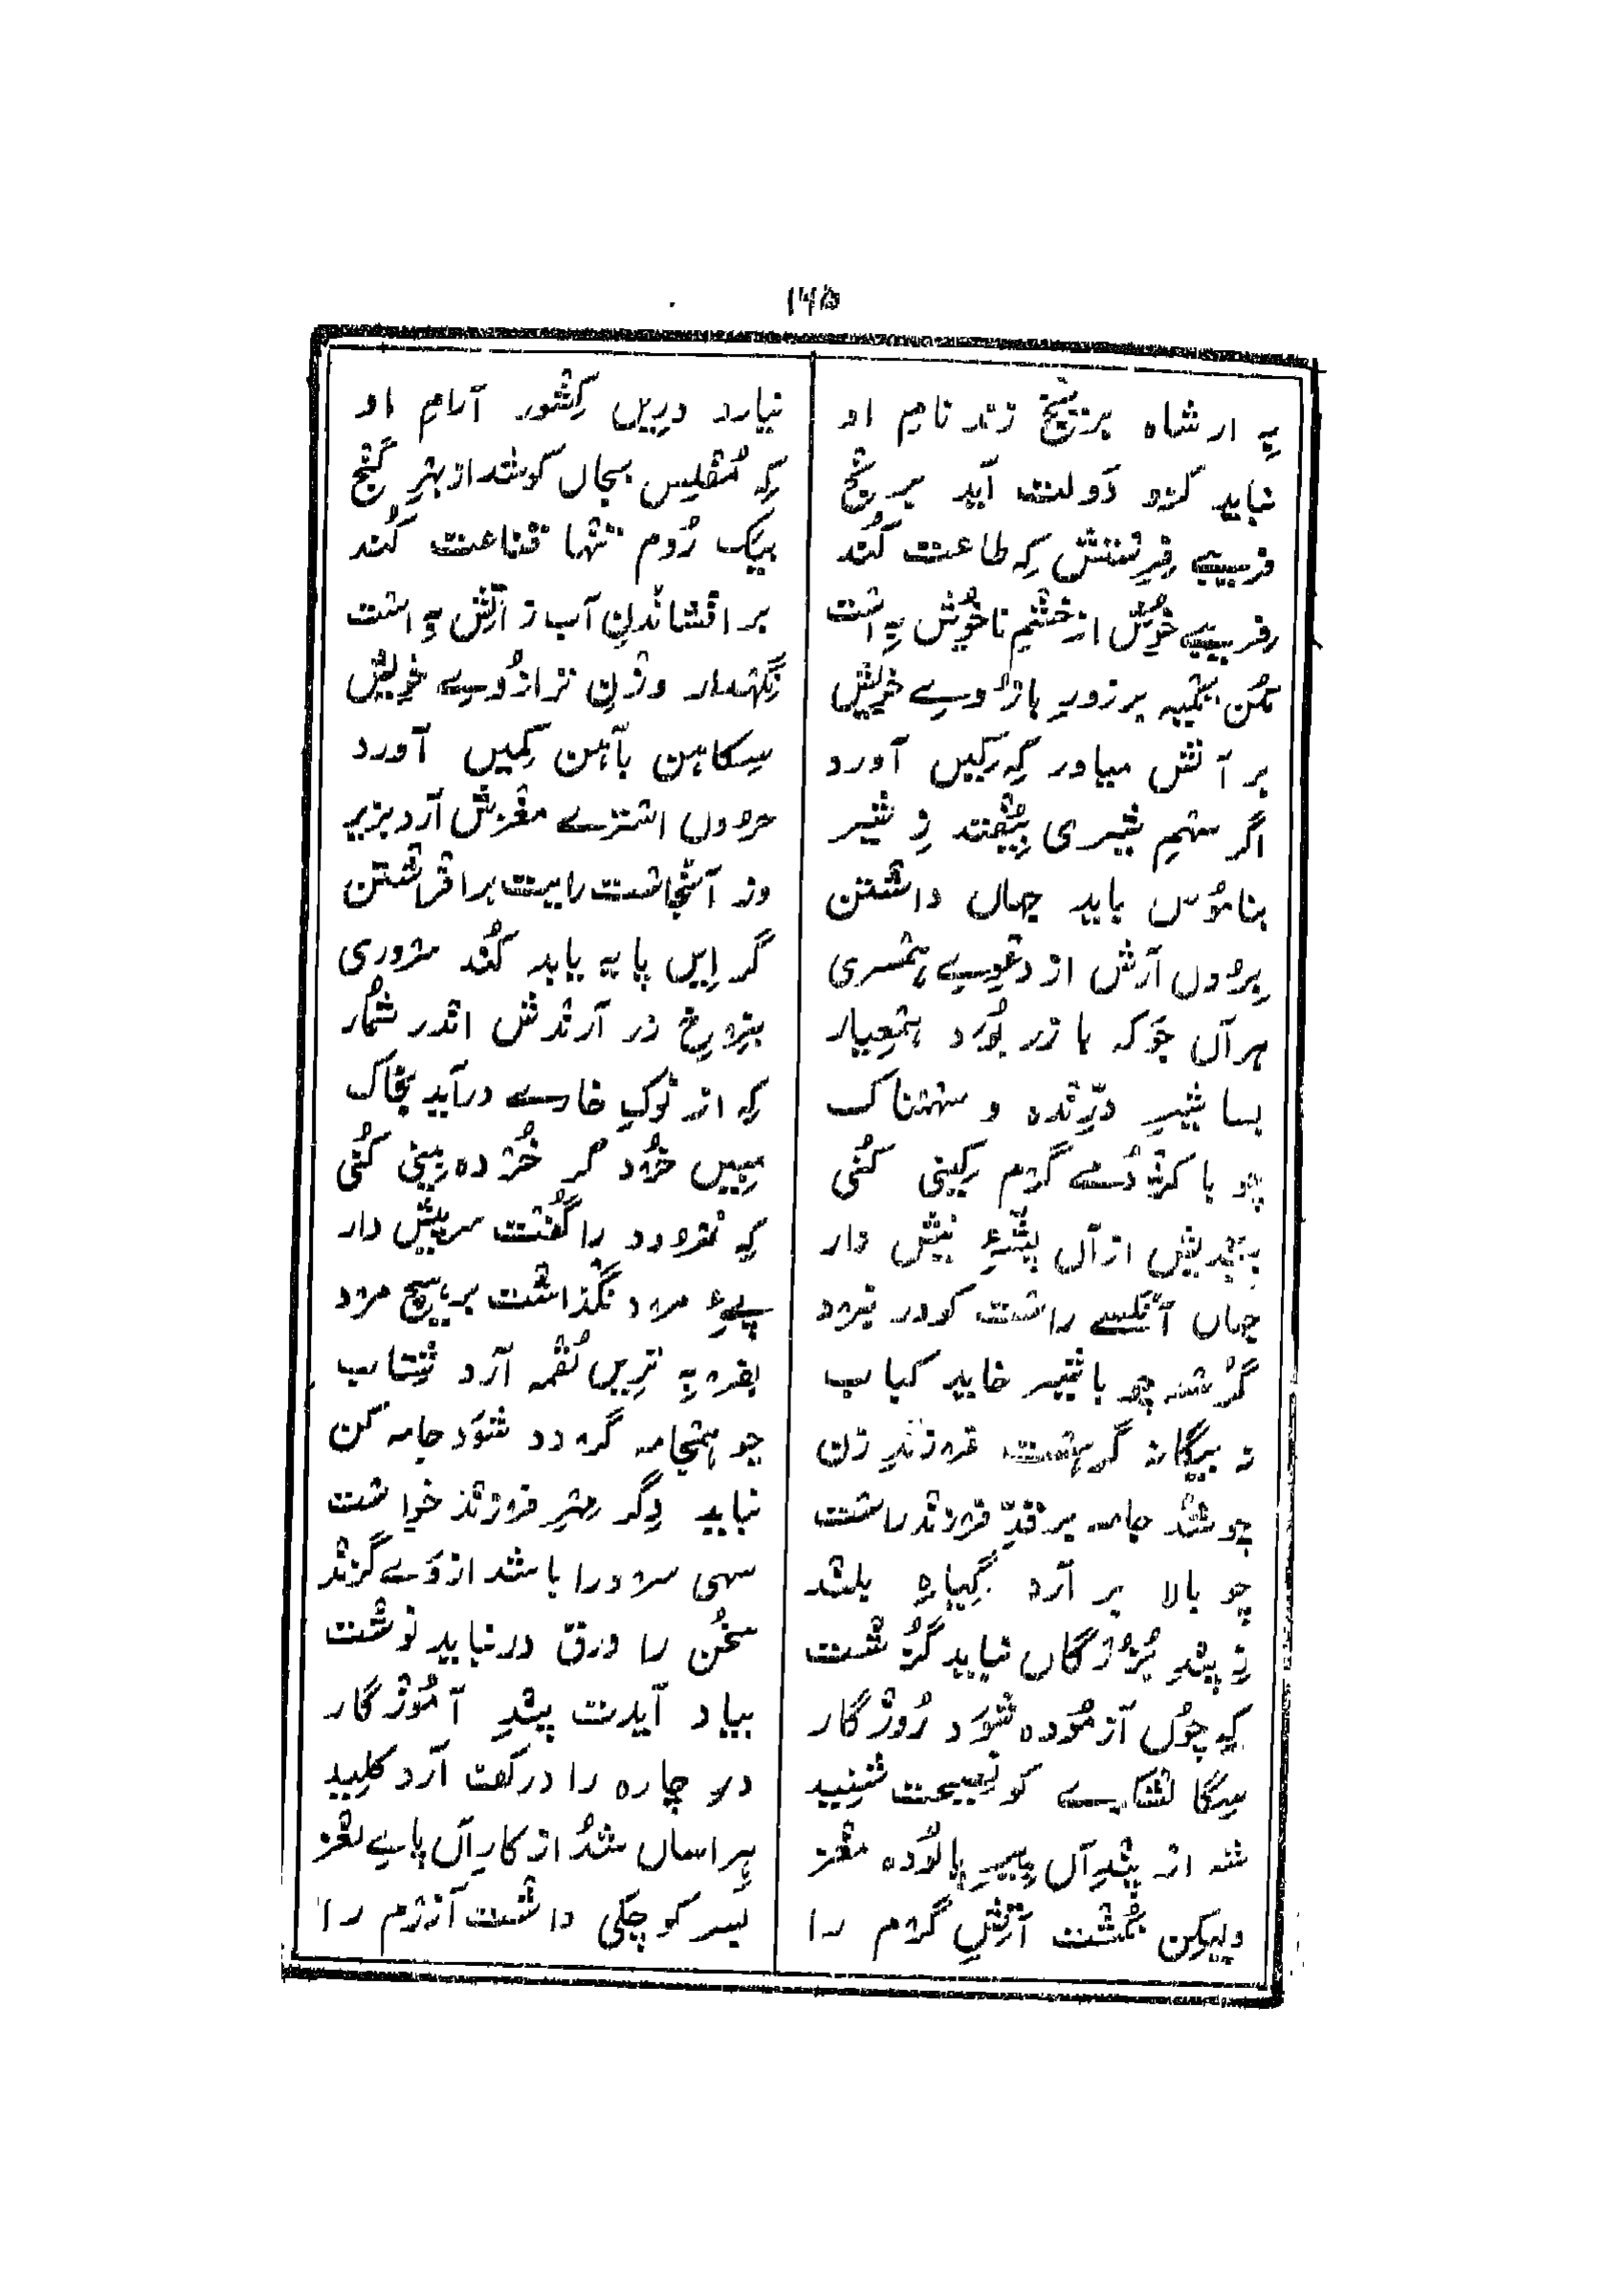 ۱۴۵
به ار شاه بر تیغ زند نام او نیارد دریں کشور آرام او
نباید کزو دولت آید برنج که مفلس بجاں کوشد از بهر گنج
فریبے فرستش که طاعت کند بیک روم تنها قناعت کند
فریبے خوش از خشم ناخوش به است بر افشاندن آب ز آتش به است
مکن تکیه بر زور بازوے خویش نگهدار وزن ترازوے خویش
بر آتش میاور که کیں آورد سکاهن بآهن کمیں آورد
اگر سهم شیری بیفتد ز شیر حروں استرے مغزش آرد بزیر
بناموس باید جهاں داشتن وز آنجاست رایت برافراشتن
بروں آرش از دعوے همسری گر ایں پایه یابد کند سروری
هر آں جو که با زر بود هم‌عیار بنرخ زر آرندش اندر شمار
بسا شیر درنده و سهمناک که از نوک خارے درآید بخاک
چو با کژدمے گرم کینی کنی مبیں خرد گر خرده بینی کنی
بیندیش از آں پشهٔ نیش دار که نمرود را گفت سر پیش دار
جهاں آنکسے راست کو در نبرد پےِ مرد نگذاشت بر هیچ مرد
گرسنه چو با شیر خاید کباب بفربه تریں لقمه آرد شتاب
ز بیگانه گر هست فرزند زن چو همجامه گردد شود جامه کن
چو شد جامه بر قد فرزند راست نباید دگر مهر فرزند خواست
چو بالا بر آرد گیاه بلند سهی سرو را باشد از وے گزند
ز پند بزرگاں نباید گذشت سخن را ورق در نباید نوشت
که چوں آزموده شود روزگار بیاد آیدت پند آموزگار
سگالشگرے کو نصیحت شنید در چاره را در کف آرد کلید
شه از پند آں پیر پالوده مغز هراساں شد از کار آں پاے لغز
ولیکن نکشت آتش گرم را بسر کوچکی داشت آزرم را